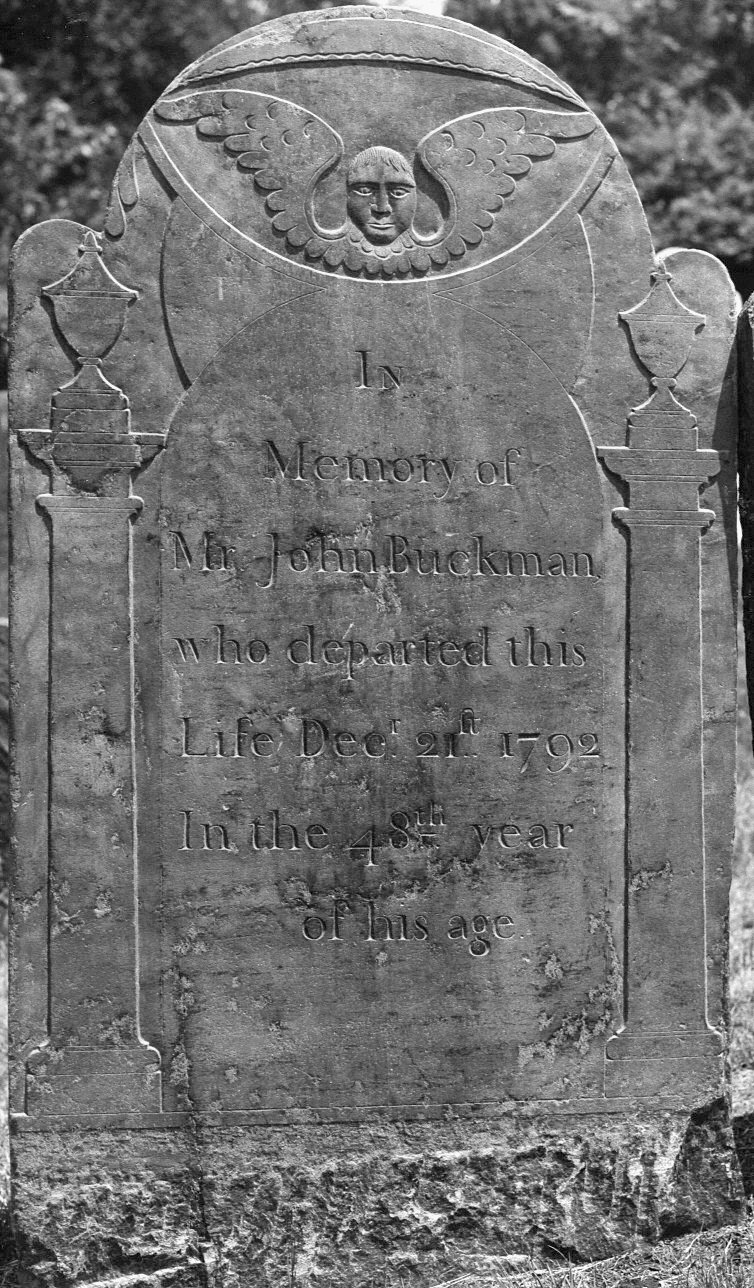 In
Memory of
Mr. John Buckman,
who departed this
Life Decr. 21st. 1792
In the 48th. year
of his age.